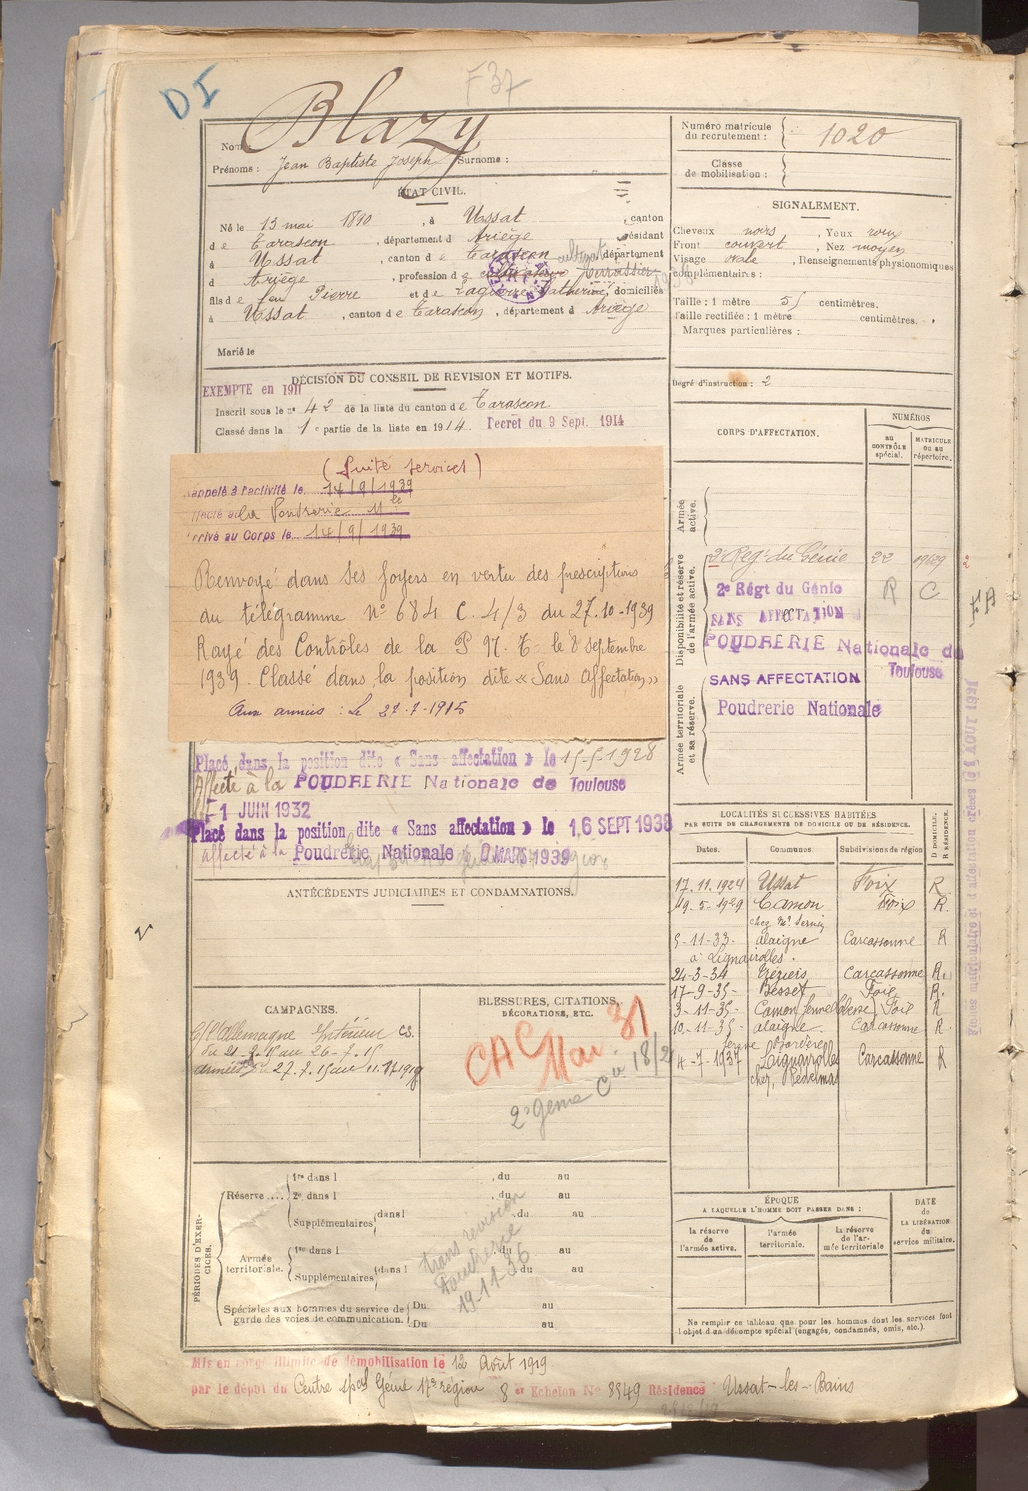 DI
F 37
Nom Blazy
Prénoms : Jean Baptiste Joseph Surnoms :
ÉTAT CIVIL.
Né le 13 mai 1890, à Ussat, canton
de Tarascon, département d Ariège, résidant
à Ussat, canton de Tarascon, département
d Ariège, profession de
fils de feu Pierre et de Catherine, domiciliés
à Ussat, canton de Tarascon, département d Ariège
Marié le
DÉCISION DU CONSEIL DE REVISION ET MOTIFS.
EXEMPTE en 1911
Inscrit sous le n° 42 de la liste du canton de Tarascon
Classé dans la 1e partie de la liste en 1914. Décret du 9 Sept. 1914
(Suite services)
appelé à l'activité le 14/9/1939
la Poudrerie
arrivé au Corps le 14/9/1939
Renvoyé dans ses foyers en vertu des prescriptions
du télégramme N° 684 C. 4/3 du 27.10-1939
Rayé des Contrôles de la P. N. T. le 8 septembre
1939. Classé dans la position dite « Sans Affectation »
Aux armées : Le 27-7-1915
Placé dans la position dite « Sans affectation » le 15-5-1928
Affecté à la POUDRERIE Nationale de Toulouse
1 JUIN 1932
Placé dans la position dite « Sans affectation » le 16 SEPT 1938
affecté à la Poudrerie Nationale MARS 1939
ANTÉCÉDENTS JUDICIAIRES ET CONDAMNATIONS.
CAMPAGNES.
C/ l'Allemagne Intérieur CS.
du 21-2-15 au 26-7-15
armées du 27.7.15 au 11.8.1919
BLESSURES, CITATIONS,
DÉCORATIONS, ETC.
CAC Mai 31
2e génie C à 18/2
PÉRIODES D'EXERCICES.
Réserve .... 1re dans l , du au
2e dans l , du au
Supplémentaires dans l du au
Armée territoriale. 1re dans l du au
Supplémentaires dans l du au
trans révision
19-11-36
Spéciales aux hommes du service de garde des voies de communication. Du au
Du au
Mis en congé illimité de démobilisation le 12 Août 1919
par le dépôt du Centre spal Génie 17e région 8 er Echelon No 8949 Résidence Ussat-les-Bains
Numéro matricule du recrutement : 1020
Classe de mobilisation :
SIGNALEMENT.
Cheveux noirs, Yeux roux
Front couvert, Nez moyen
Visage ovale, Renseignements physionomiques
complémentaires :
Taille : 1 mètre 51 centimètres.
Taille rectifiée : 1 mètre centimètres.
Marques particulières :
Degré d'instruction : 2
CORPS D'AFFECTATION.
NUMÉROS
au CONTRÔLE spécial.
MATRICULE ou au répertoire.
Armée active.
Disponibilité et réserve de l'armée active.
2e Regt du Génie 22 19429
2e Régt du Génie R C
SANS AFFECTATION
POUDRERIE Nationale de
Toulouse
Armée territoriale et sa réserve.
SANS AFFECTATION
Poudrerie Nationale
LOCALITÉS SUCCESSIVES HABITÉES
PAR SUITE DE CHANGEMENTS DE DOMICILE OU DE RÉSIDENCE.
Dates. Communes. Subdivisions de région D DOMICILE. R RÉSIDENCE.
17.11.1924 Ussat Foix R.
19-5-1929 Camon Foix R.
chez Mr Sernin
5-11-33- Alaigne Carcassonne R
à Lignairolles.
24-3-34 Carcassonne R.
17-9-35- Besset Foix R.
3-11-35- Camon Foix R
10-11-35- Alaigne. Carcassonne R.
4-7-1937 Lignairolles Carcassonne R
chez
ÉPOQUE
A LAQUELLE L'HOMME DOIT PASSER DANS :
la réserve de l'armée active.
l'armée territoriale.
la réserve de l'armée territoriale
DATE de LA LIBÉRATION du service militaire.
Ne remplir ce tableau que pour les hommes dont les services font
l'objet d'un décompte spécial (engagés, condamnés, omis, etc.).